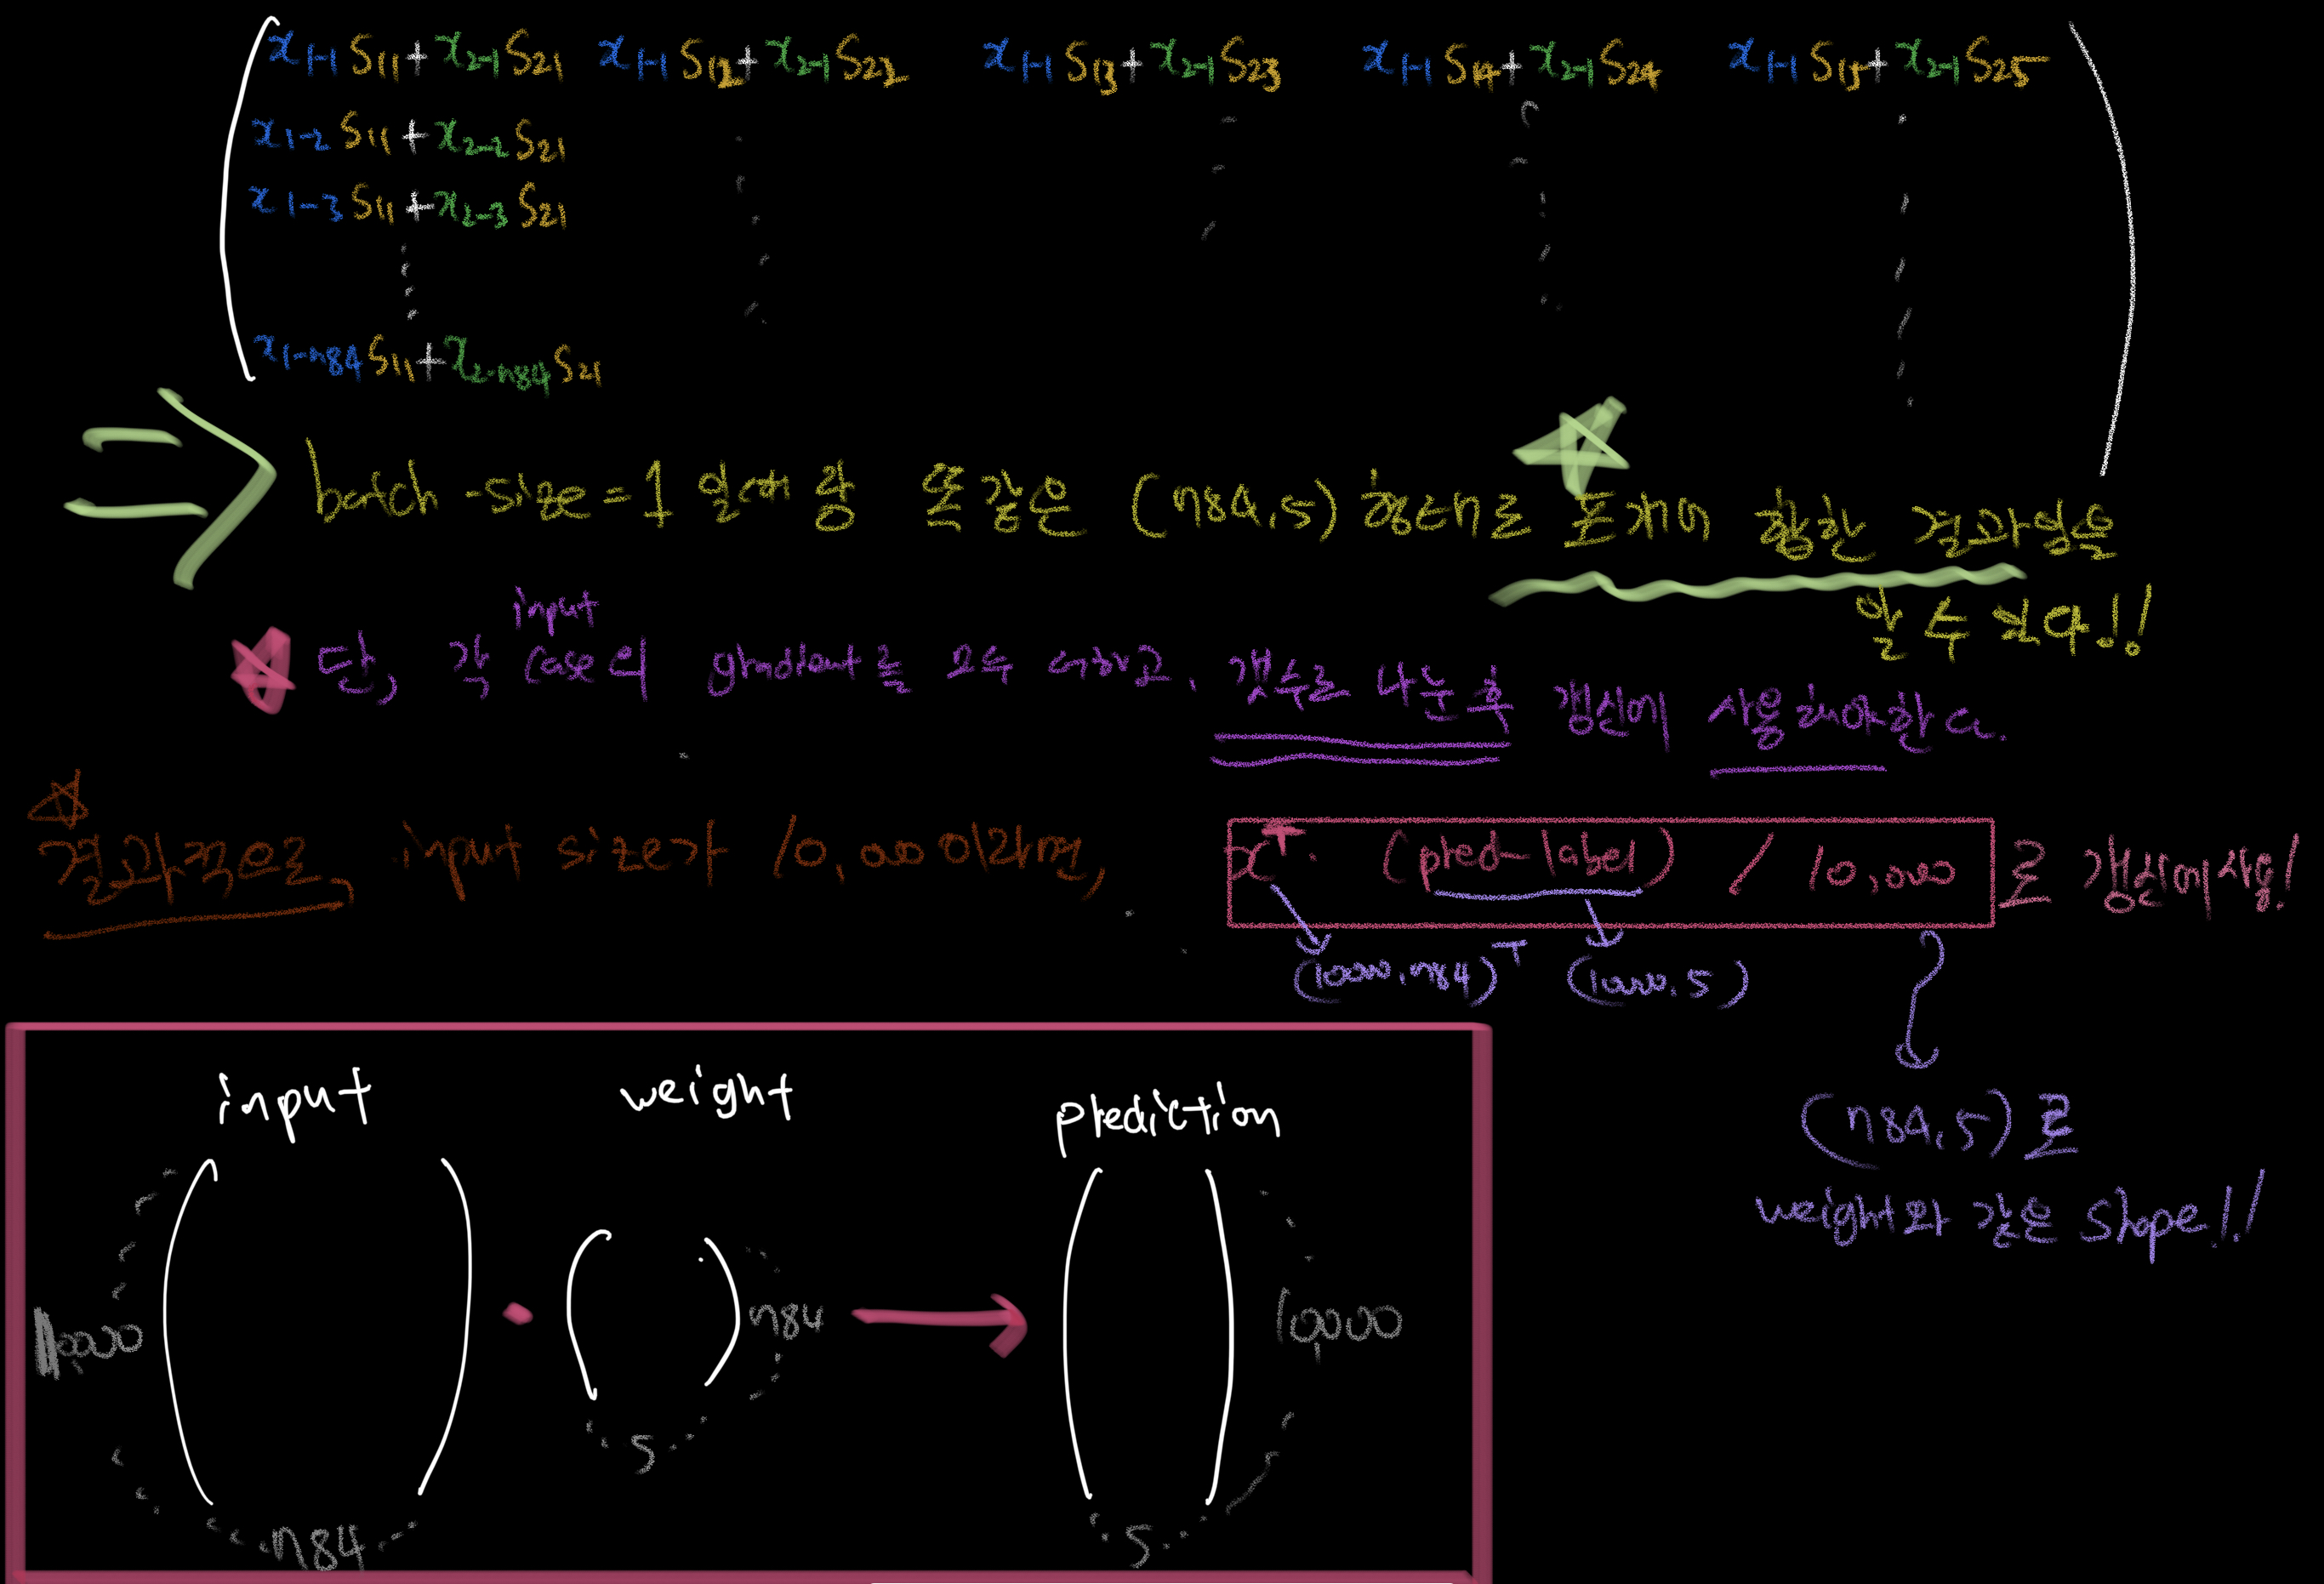 x1-1 S11 + x2-1 S21 x1-1 S12 + x2-1 S22 x1-1 S13 + x2-1 S23 x1-1 S14 + x2-1 S24 x1-1 S15 + x2-1 S25
x1-2 S11 + x2-2 S21
x1-3 S11 + x2-3 S21
x1-784 S11 + x2-784 S21
batch-size=1 일때랑 똑같은 (784,5) 형태로 포개어 합한 결과임을
알 수 있다!!
input
단, 각 case의 gradient를 모두 더하고, 갯수로 나눈 후 갱신에 사용해야한다.
결과적으로, input size가 10,000이라면, x^T · (pred-label) / 10,000 로 갱신에 사용!
(10000,784)^T (10000,5)
(784,5)로
weight와 같은 shape!!
input weight prediction
10000 784 10,000
5
784 5